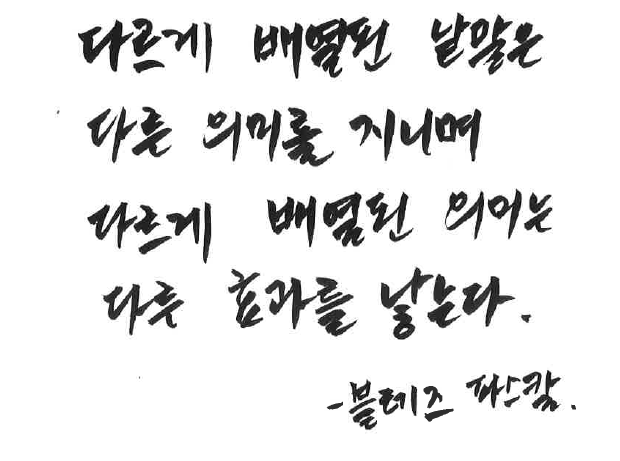 다르게 배열된 낱말은
다른 의미를 지니며
다르게 배열된 의미는
다른 효과를 낳는다.
-블테즈 파스칼.